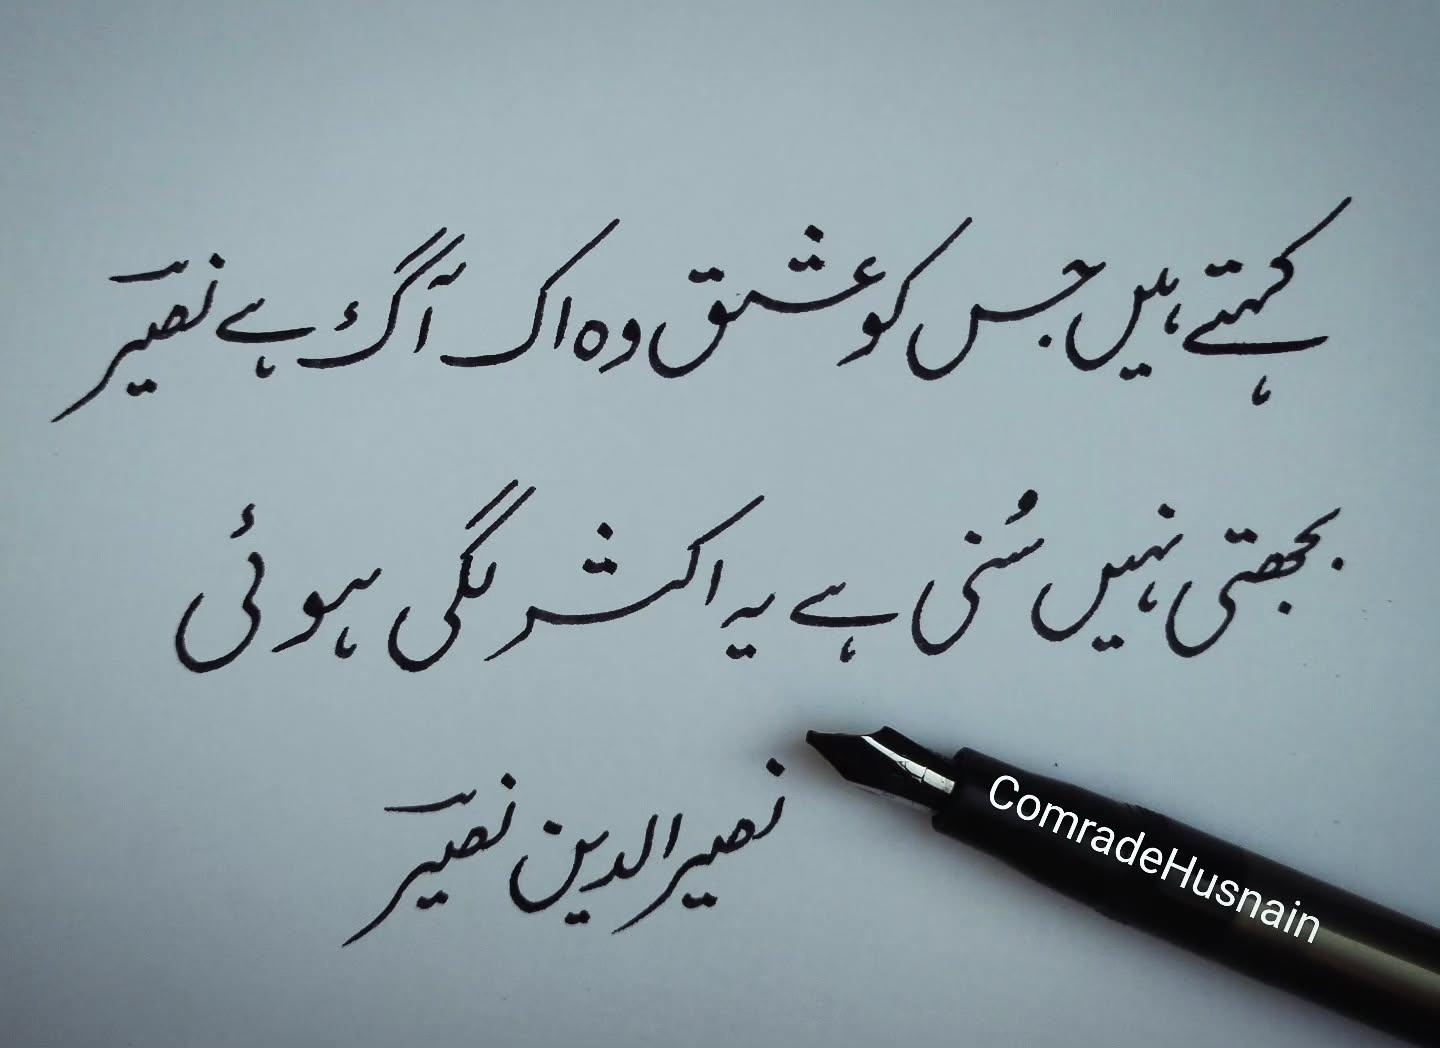 کہتے ہیں جس کو عشق وہ اک آگ ہے نصیرؔ
بجھتی نہیں سُنی ہے یہ اکثر لگی ہوئی
نصیر الدین نصیرؔ
ComradeHusnain